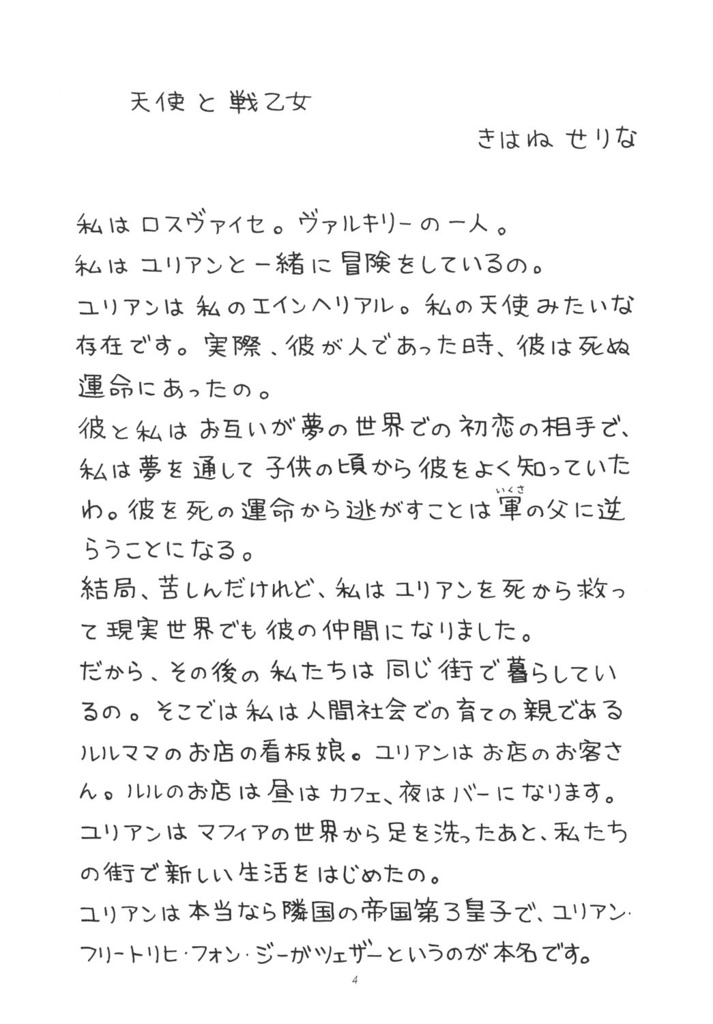 天使と戦乙女
きはね せりな
私はロスヴァイセ。ヴァルキリーの一人。
私はユリアンと一緒に冒険をしているの。
ユリアンは私のエインヘリアル。私の天使みたいな
存在です。実際、彼が人であった時、彼は死ぬ
運命にあったの。
彼と私はお互いが夢の世界での初恋の相手で、
私は夢を通して子供の頃から彼をよく知っていた
いくさ
わ。彼を死の運命から逃がすことは軍の父に逆
らうことになる。
結局、苦しんだけれど、私はユリアンを死から救っ
て現実世界でも彼の仲間になりました。
だから、その後の私たちは同じ街で暮らしてい
るの。そこでは私は人間社会での育ての親である
ルルママのお店の看板娘。ユリアンはお店のお客さ
ん。ルルのお店は昼はカフェ、夜はバーになります。
ユリアンはマフィアの世界から足を洗ったあと、私たち
の街で新しい生活をはじめたの。
ユリアンは本当なら隣国の帝国第3皇子で、ユリアン・
フリートリヒ・フォン・ジーがツェザーというのが本名です。
4